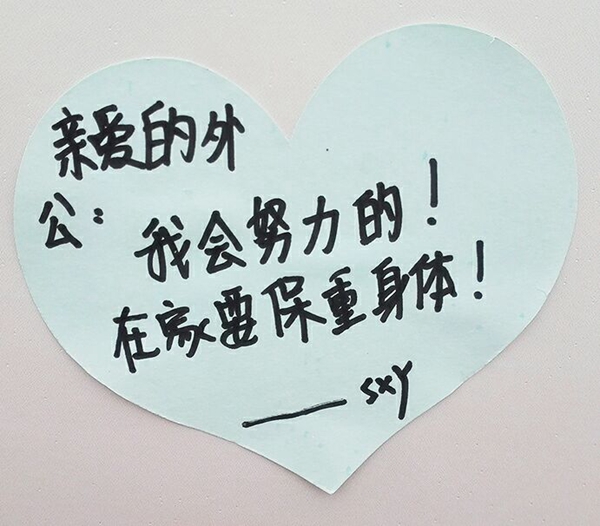 亲爱的外
公：
我会努力的！
在家要保重身体！
——sxy